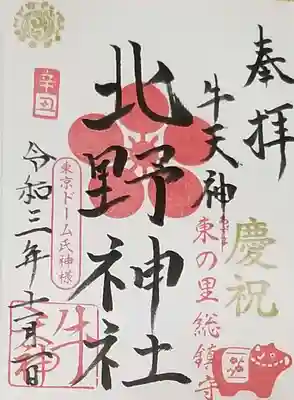 奉拝
慶祝
牛天神
東の里総鎮守
北野神社
東京ドーム氏神様
辛丑
令和三年十一月
牛天神